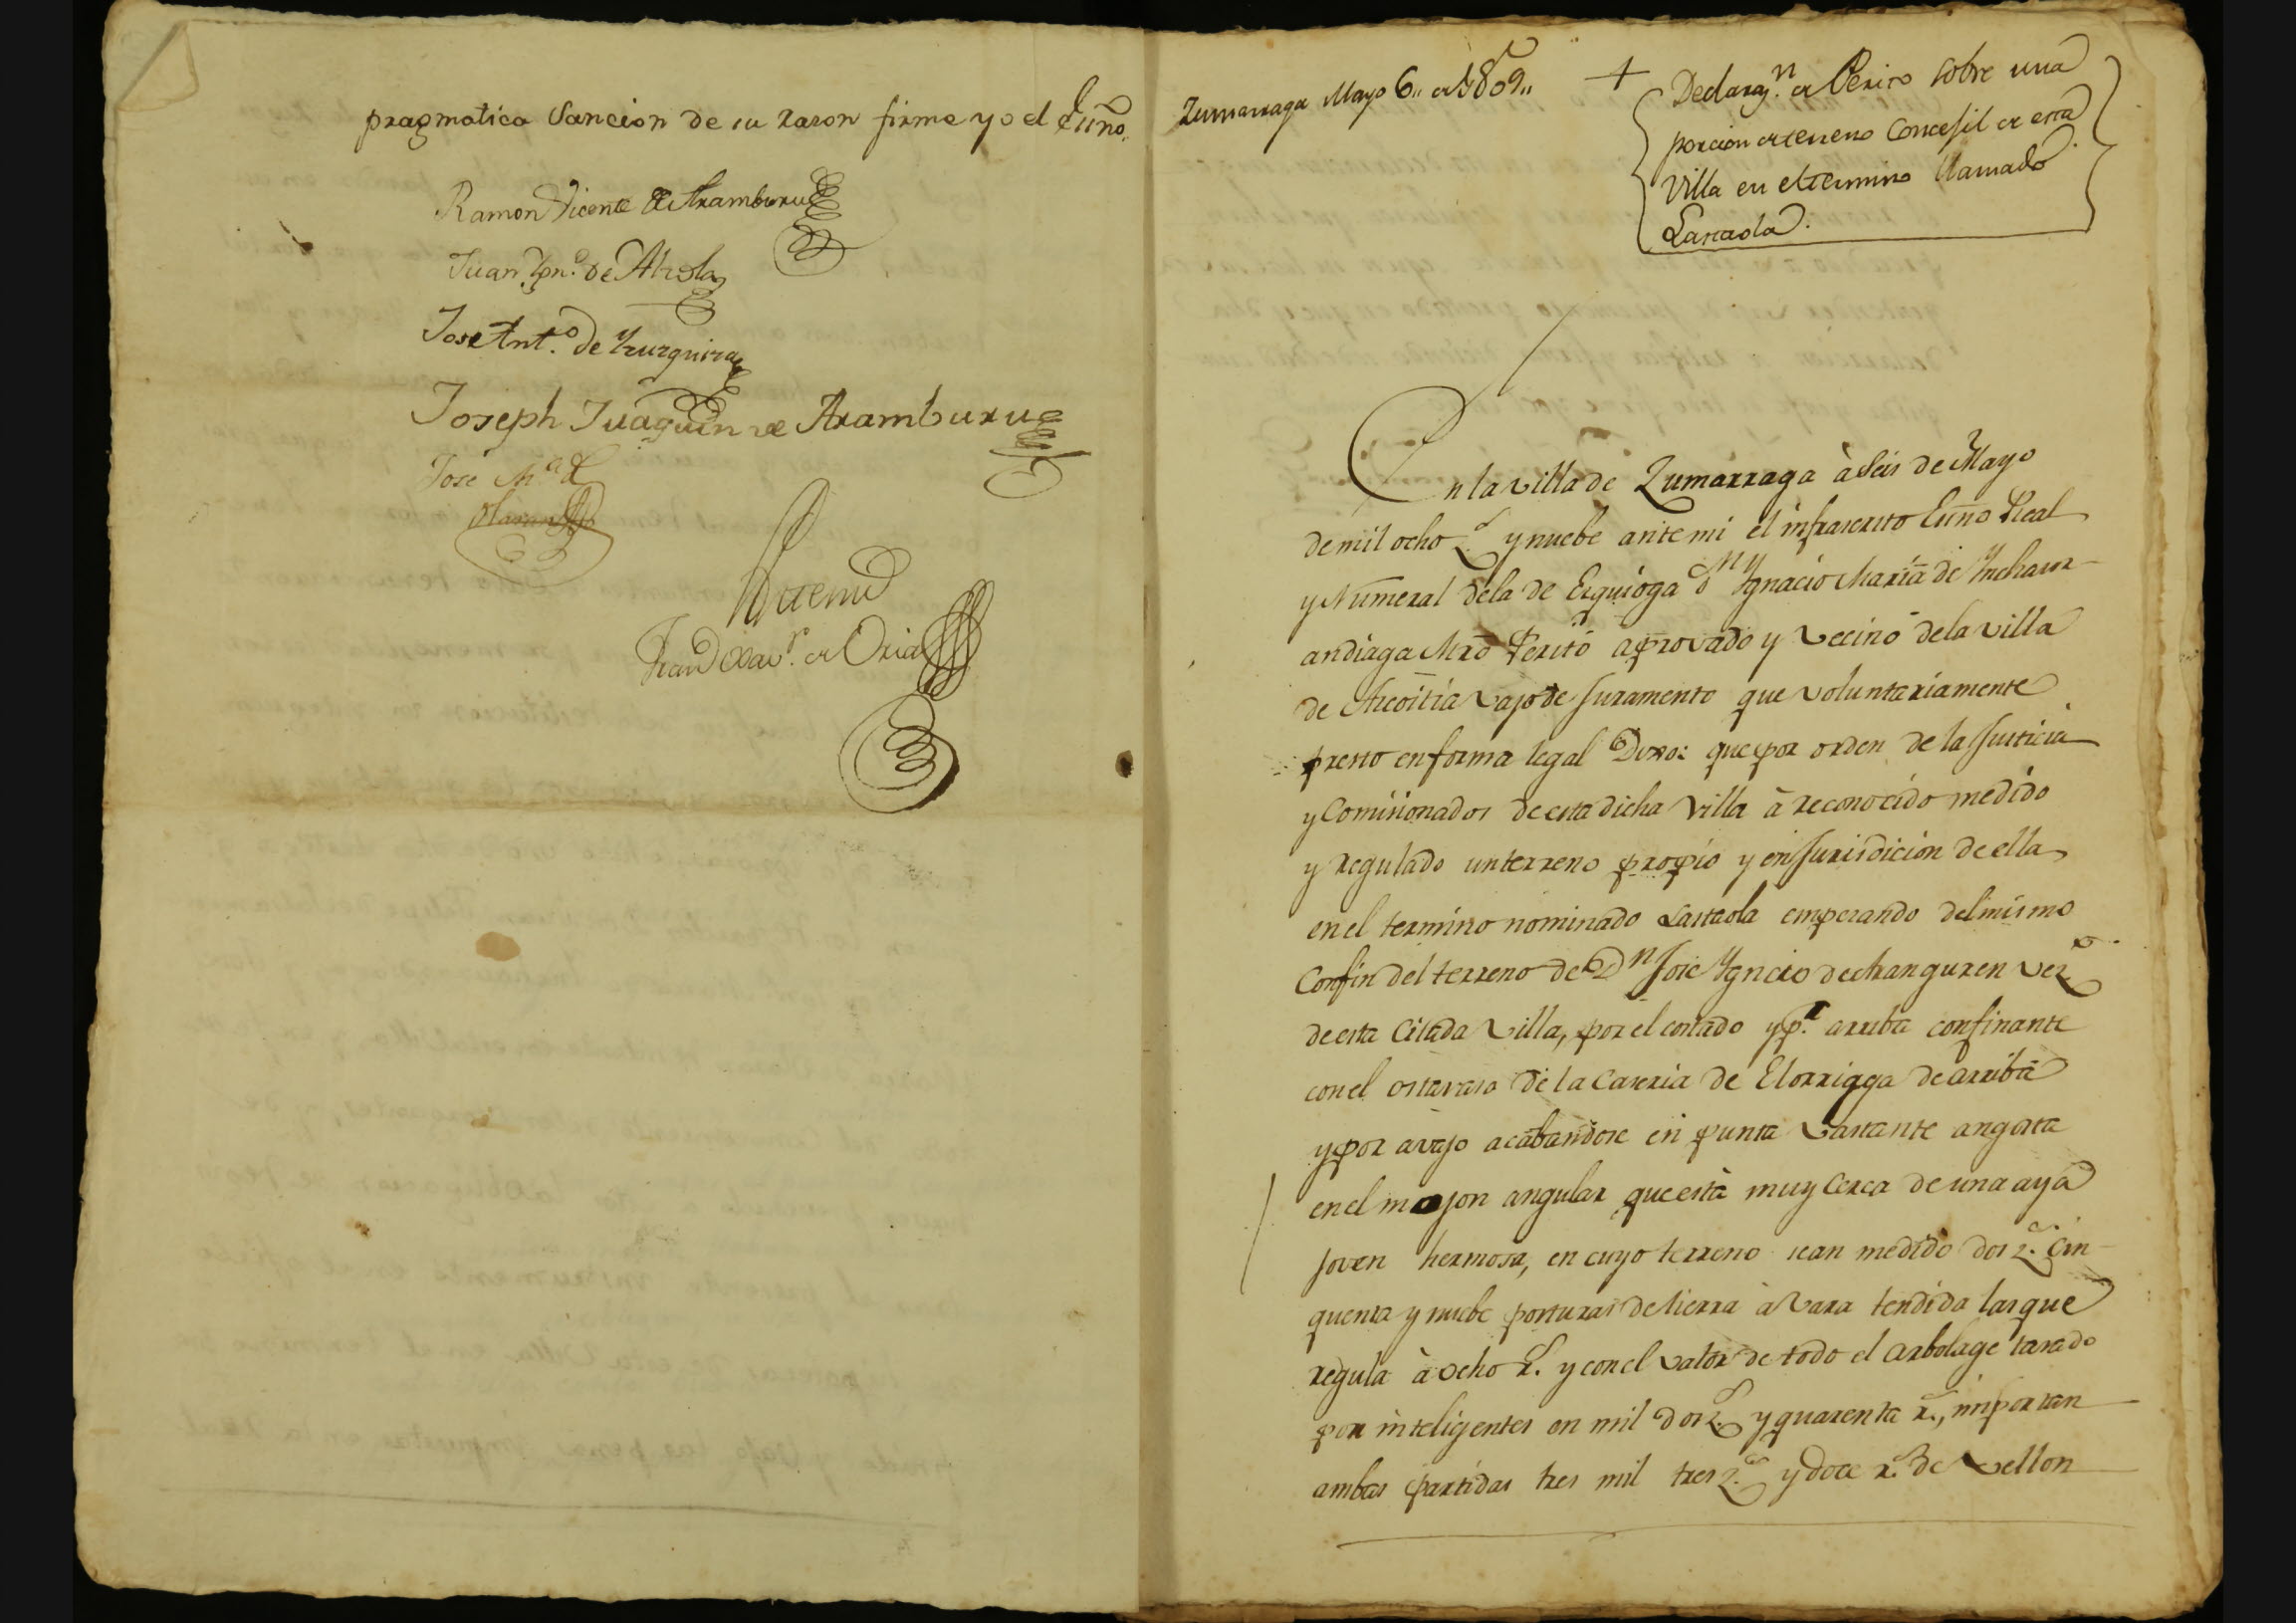 pragmatica Sancion de su razon firme yo el Essño.
Ramon Vicente de Aramburu
Juan Ygn.º de Alzola
Jose Ant.º de Yzurquiza
Joseph Juaquin de Aramburu
Jose M.ª de
Ante mi
Fran.co Xav.r de Oria
Zumarraga Mayo 6,, de 1809,,
+
Declaraz.n de Perito sobre una
porcion de terreno Concegil de esta
Villa en el termino llamado
Lastaola.
En la villa de Zumarraga à seis de Mayo
de mil ocho z.s y nuebe ante mi el infraescrito Essno Real
y Numeral dela de Ezquioga D.n Ygnacio Maria de Ynchaur-
andiaga Mrõ Perito aprovado y vecino dela villa
de Azcoitia vajo de Juramento que voluntariamente
presto en forma legal Dixo: que por orden de la Justicia
y Comisionados de esta dicha Villa à reconocido medido
y regulado un terreno propio y en Jurisdicion de ella
en el termino nominado Lastaola empezando del mismo
Confin del terreno de D.n Jose Ygncio de Aranguren vez.º
de esta Citada Villa, por el costado y p.r arriba confinante
con el ostavaso de la Caseria de Elorriaga de arriba
y por avajo acabandose en punta vastante angosta
en el mojon angular que està muy Cerca de una aya
joven hermosa, en cuyo terreno sean medido dos z.s Cin-
quenta y nuebe posturas de tierra à vara tendida las que
regula à ocho r.s y con el valor de todo el arbolage tasado
por inteligentes en mil dos z.s y quarenta r.s, importan
ambas partidas tres mil tres z.s y doce r.s de vellon